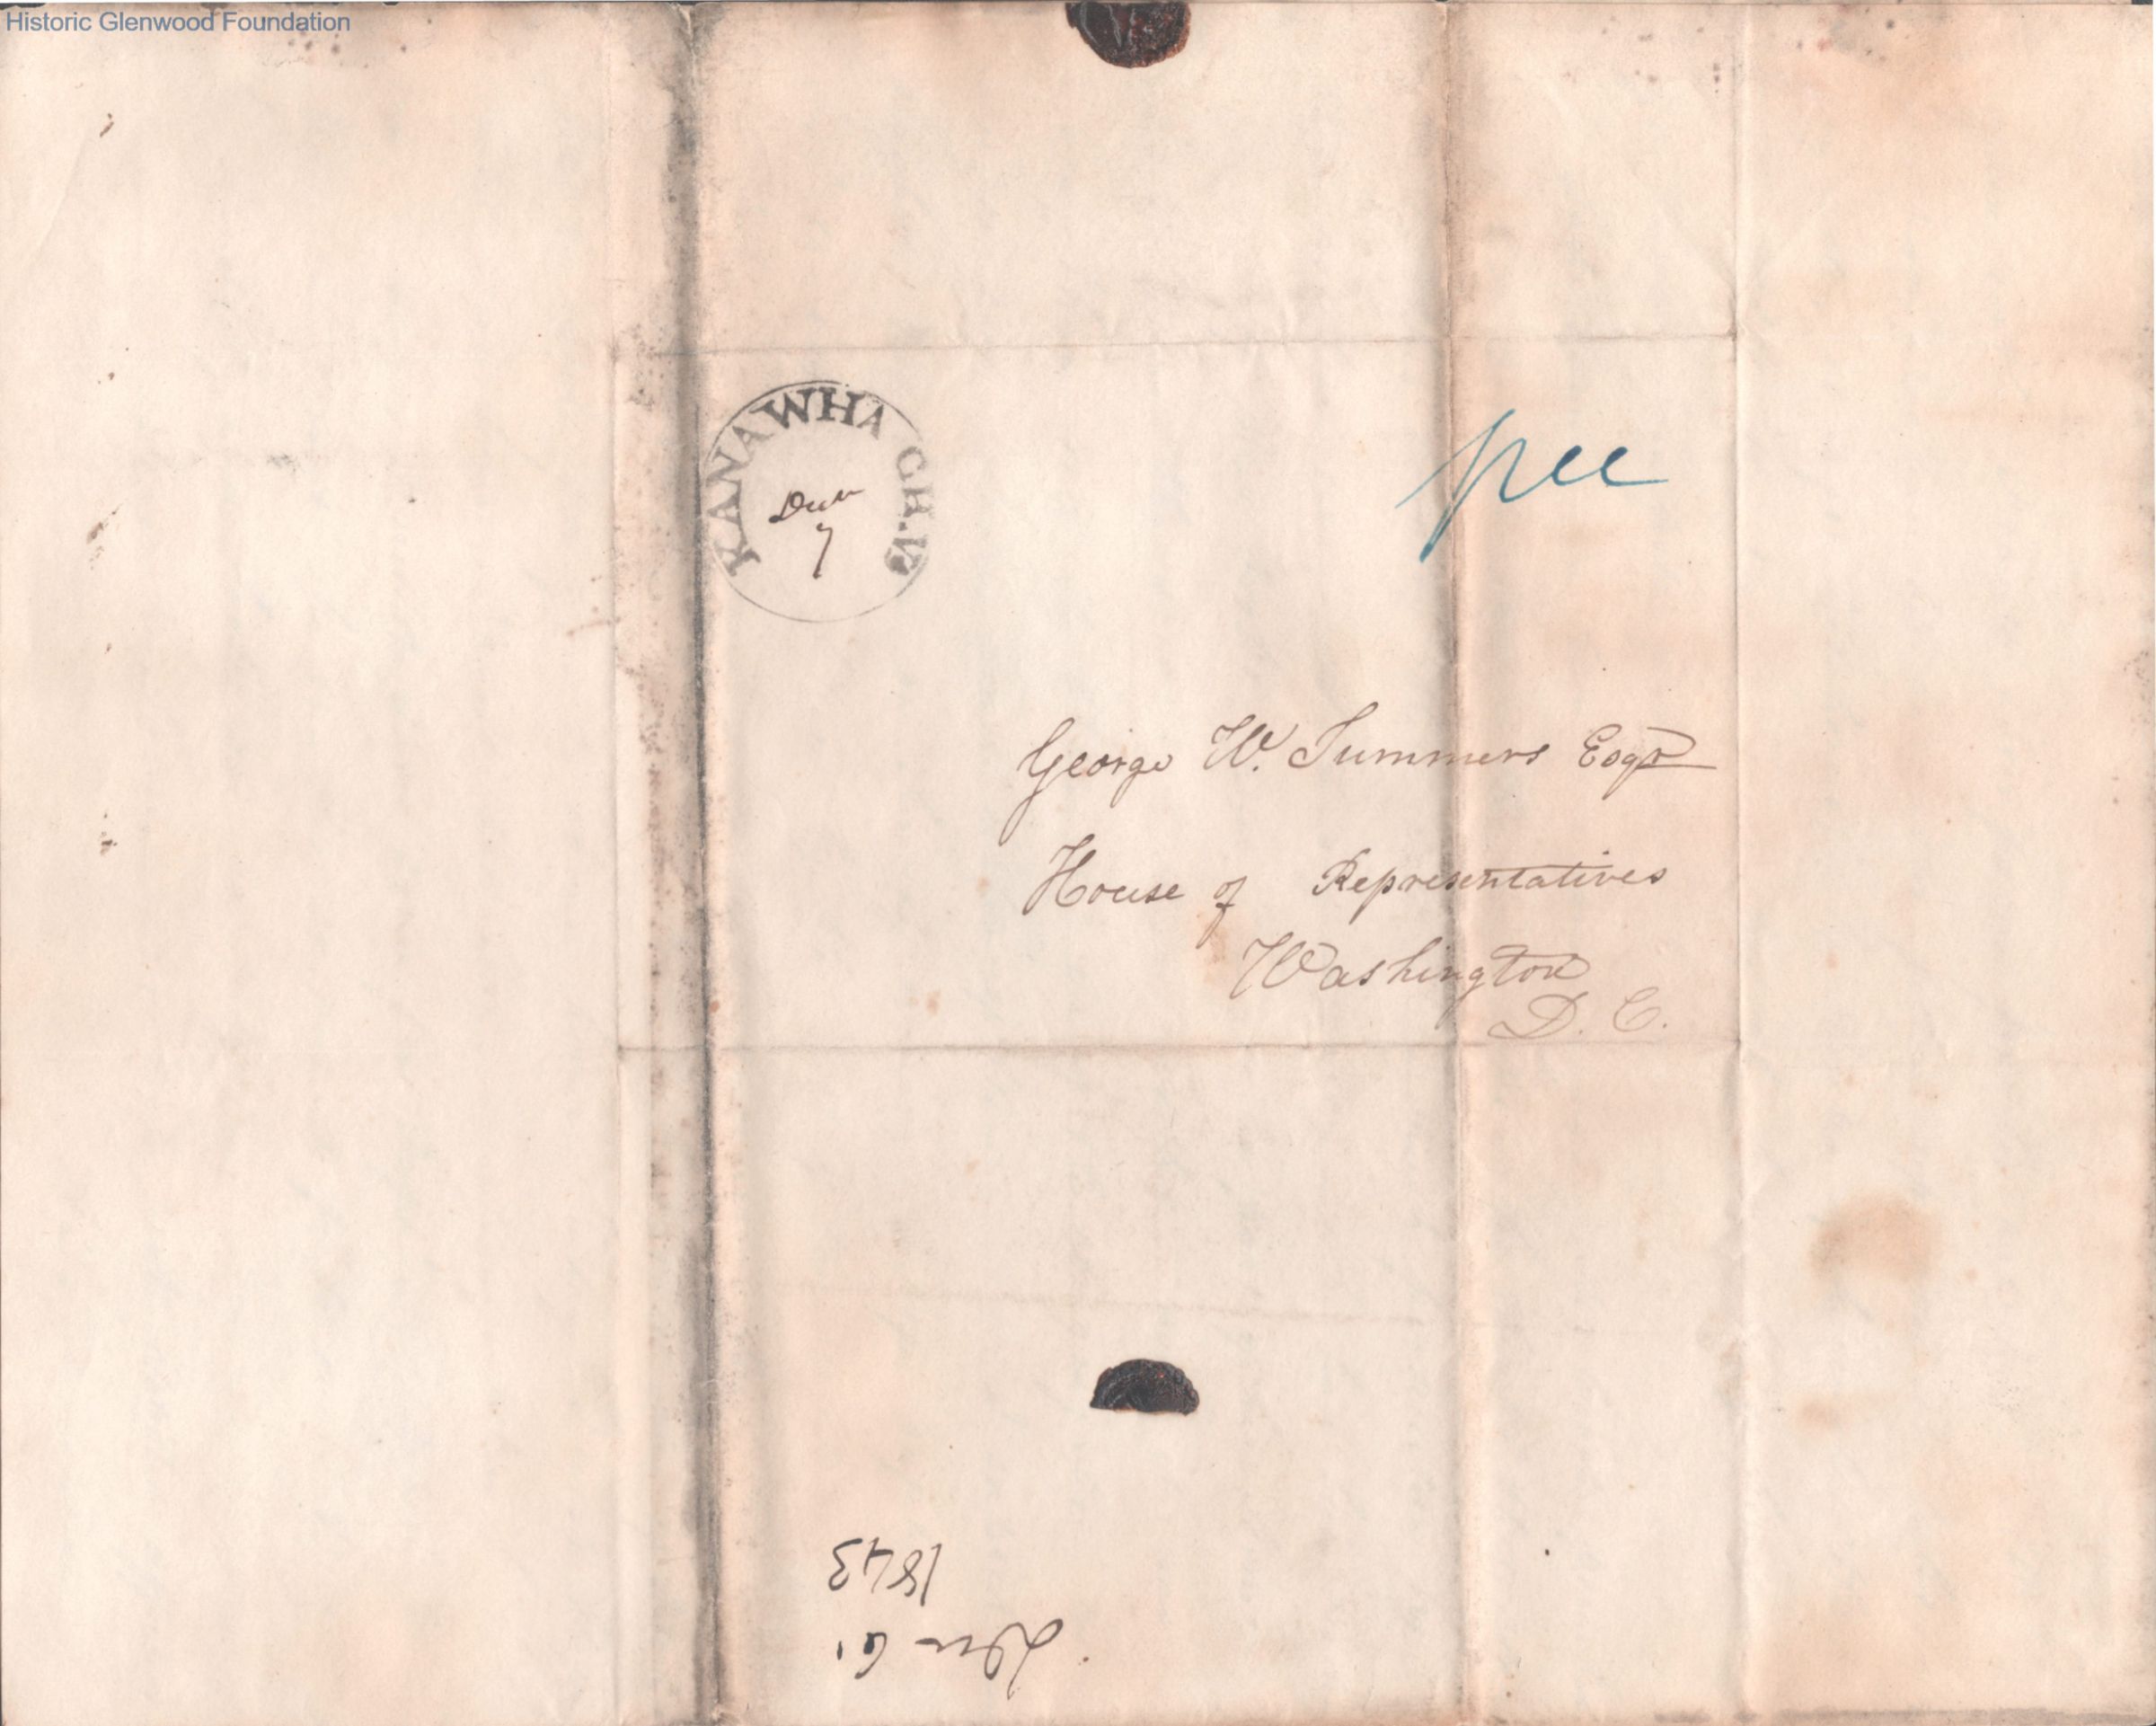 Historic Glenwood Foundation
KANAWHA C.H. Va
Decr
7
free
George W. Summers Esqr
House of Representatives
Washington
D. C.
Decr 6.
1843